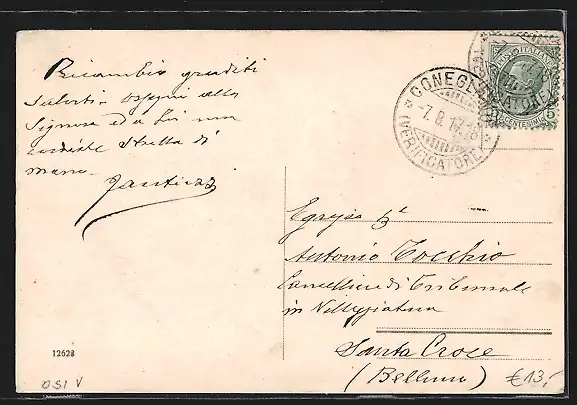 Ricambio graditi
saluti - ossequi alla
Signora ed a Lei una
cordiale stretta di
mano.
CONEGL
7.8.17.18
(VERIFICATORE)
POSTE ITALIANE
CENTESIMI 5
Egregio
Antonio Tocchio
Cancelliere di Tribunale
in Villeggiatura
Santa Croce
(Belluno)
12628
OSI V
€13,-